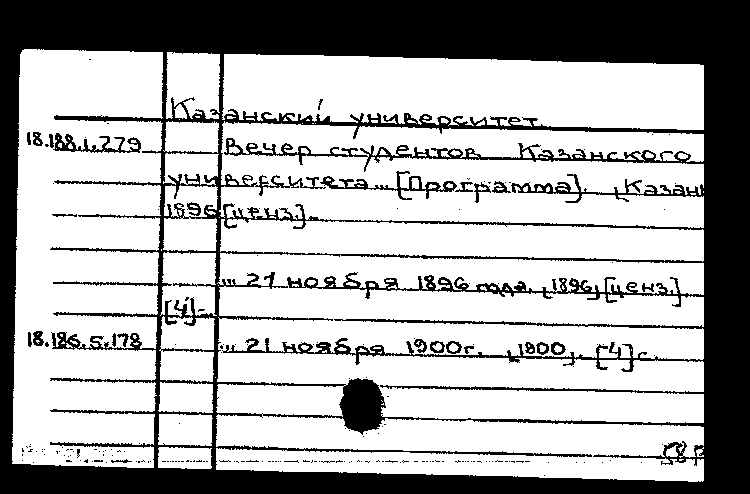 Казанский университет.
18.188.1.279 Вечер студентов Казанского
университета... [Программа]. Казань
1896 [ценз.].
... 21 ноября 1896 года. [1896] [ценз.]
[4] с.
18.186.5.178 ... 21 ноября 1900г. [1900]. [4] с.